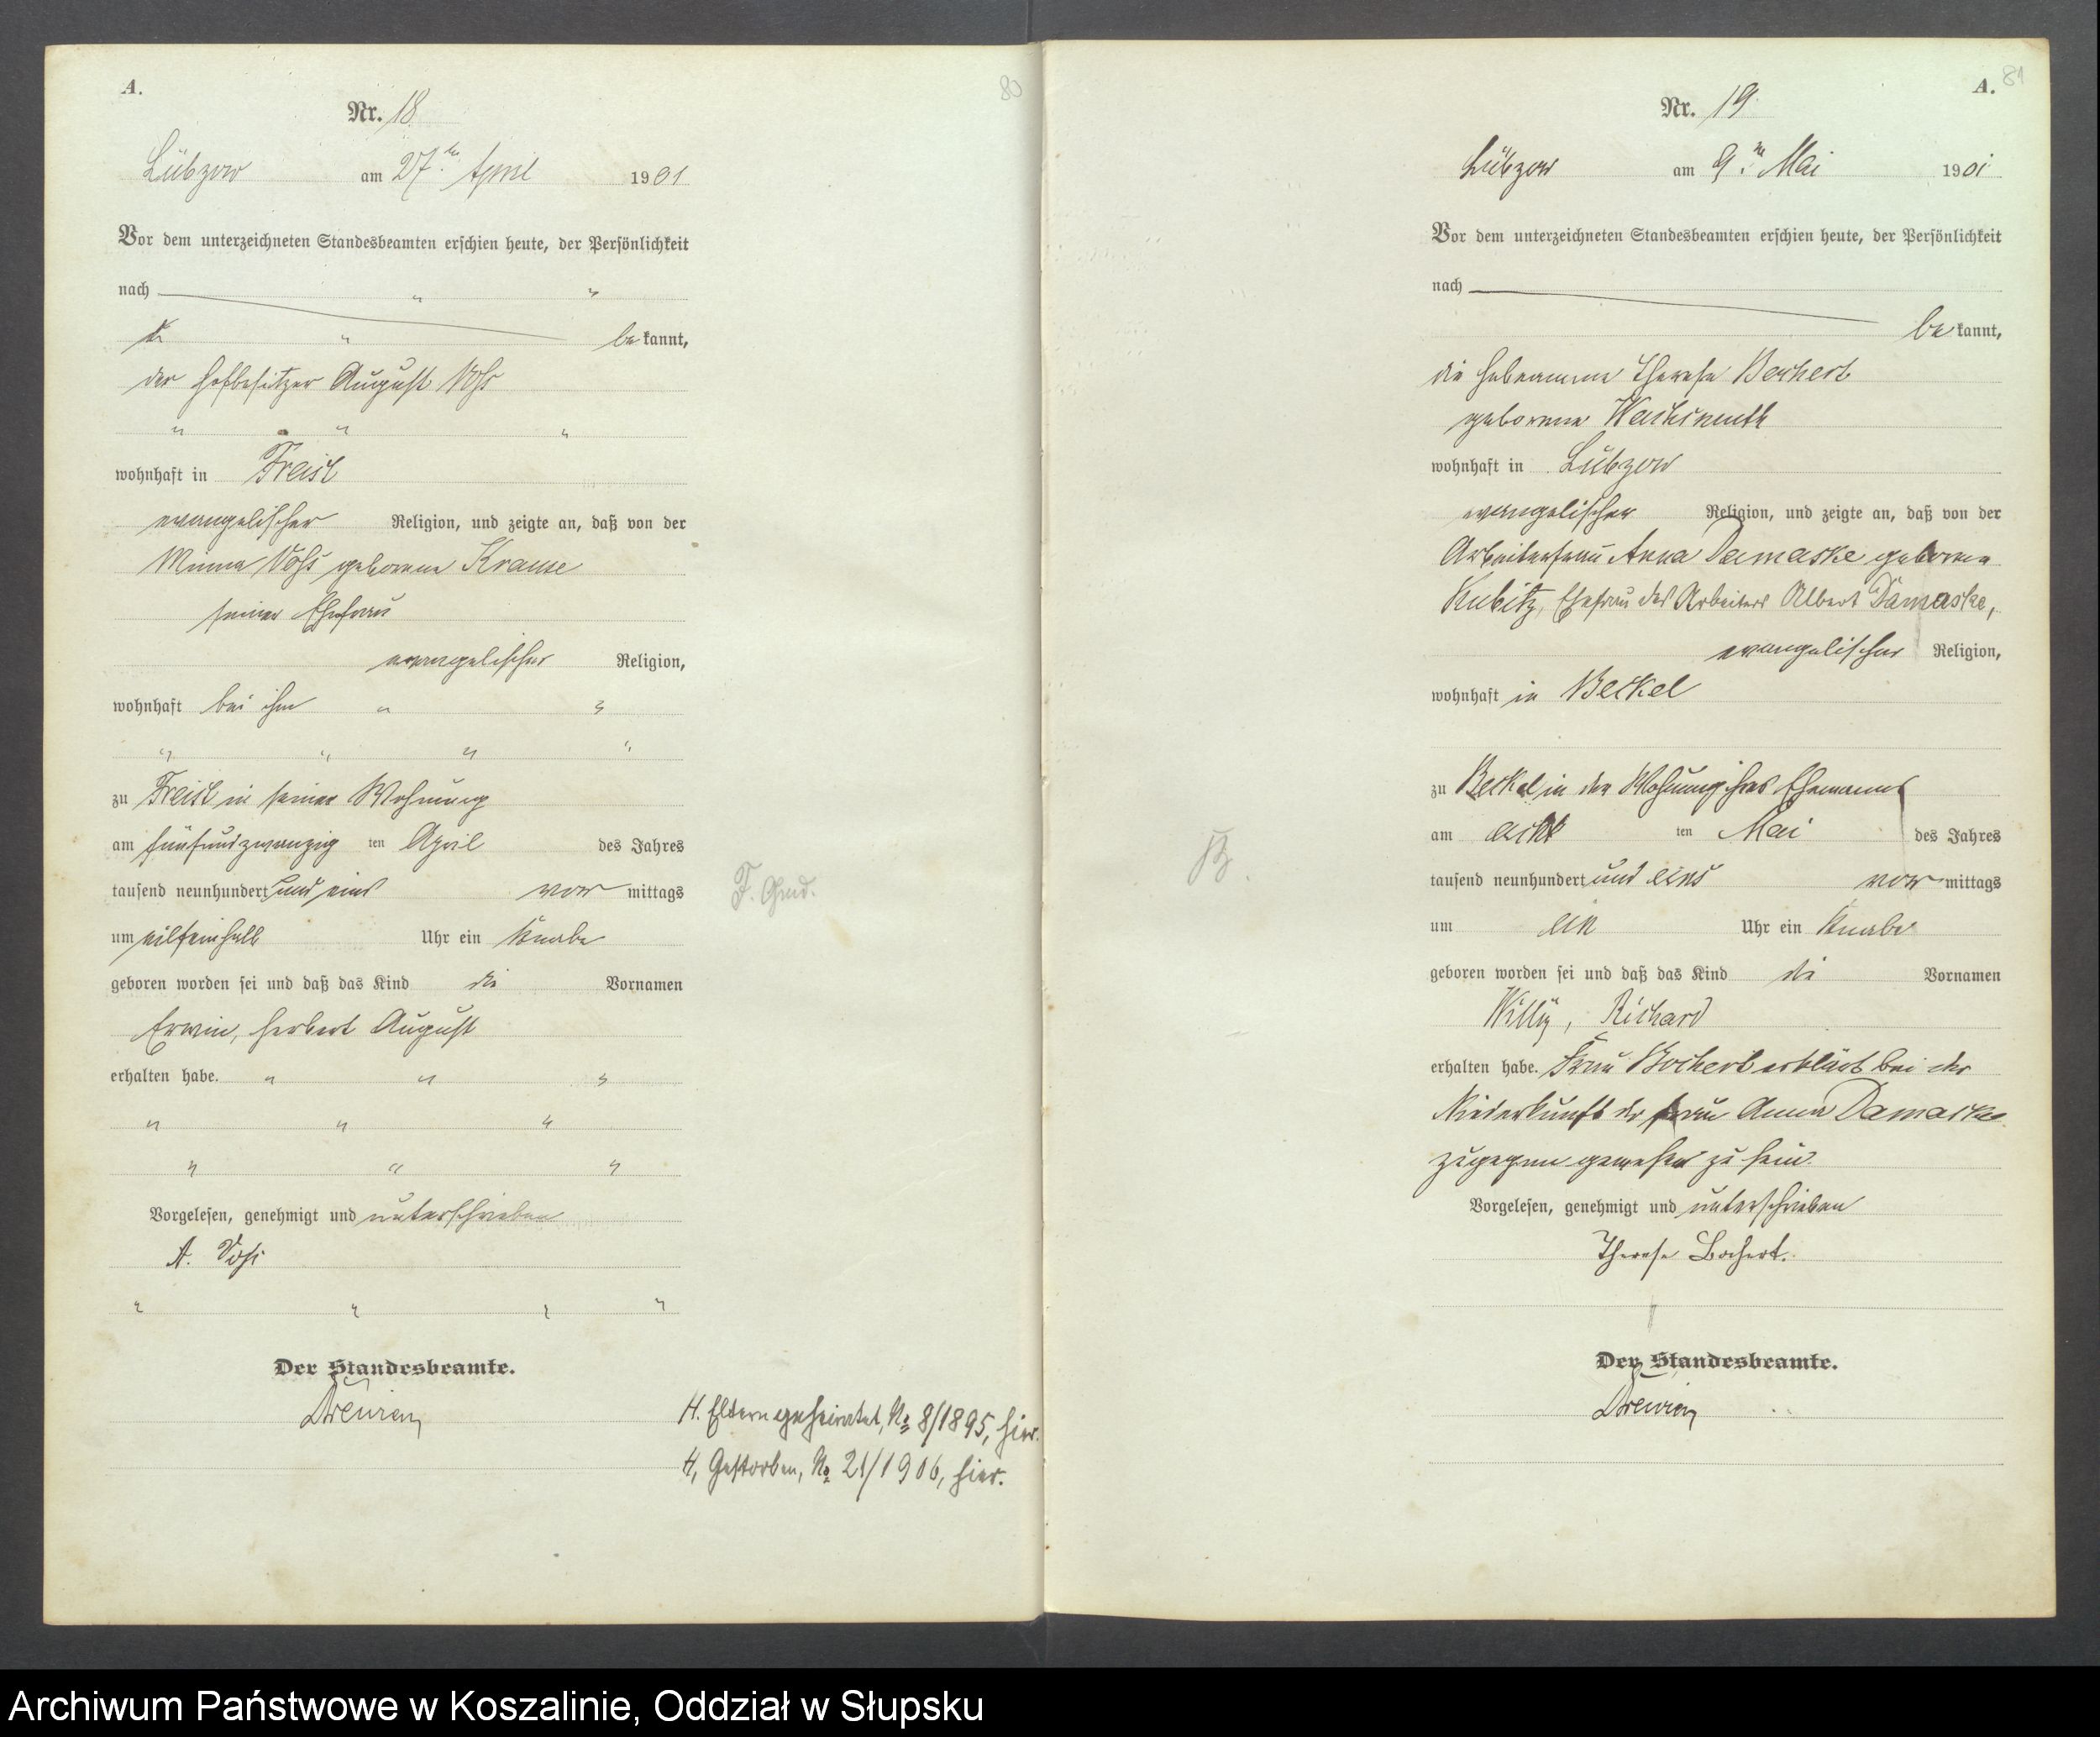 A.
80
Nr. 18
Lübzow am 27.ten April 1901
Vor dem unterzeichneten Standesbeamten erschien heute, der Persönlichkeit
nach
bekannt,
der Hofbesitzer August Voß
wohnhaft in Freist
evangelischer Religion, und zeigte an, daß von der
Minna Voß geborene Krause
seiner Ehefrau
evangelischer Religion,
wohnhaft bei ihm
zu Freist in seiner Wohnung
am fünfundzwanzig ten April des Jahres
tausend neunhundert und eins vor mittags
um Uhr ein Knabe
geboren worden sei und daß das Kind die Vornamen
Erwin, Herbert August
erhalten habe.
Vorgelesen, genehmigt und unterschrieben
A. Voß
Der Standesbeamte.
F. Gmd.
H. Eltern geheiratet, No 8/1895, hier.
H, Gestorben, No 21/1906, hier.
A.
81
Nr. 19
Lübzow am 9.ten Mai 1901
Vor dem unterzeichneten Standesbeamten erschien heute, der Persönlichkeit
nach
bekannt,
die Hebeamme Therese Borchert
geborene Wachsmuth
wohnhaft in Lübzow
evangelischer Religion, und zeigte an, daß von der
Arbeiterfrau Anna Damaske geborene
Kubitz, Ehefrau des Arbeiters Albert Damaske,
evangelischer Religion,
wohnhaft in Beckel
zu Beckel in der Wohnung ihres Ehemannes
am acht ten Mai des Jahres
tausend neunhundert und eins vor mittags
um ein Uhr ein Knabe
geboren worden sei und daß das Kind die Vornamen
Willy, Richard
erhalten habe. Frau Borchert erklärt bei der
Niederkunft der Frau Anna Damaske
zugegen gewesen zu sein.
Vorgelesen, genehmigt und unterschrieben
Therese Borchert.
Der Standesbeamte.
Archiwum Państwowe w Koszalinie, Oddział w Słupsku